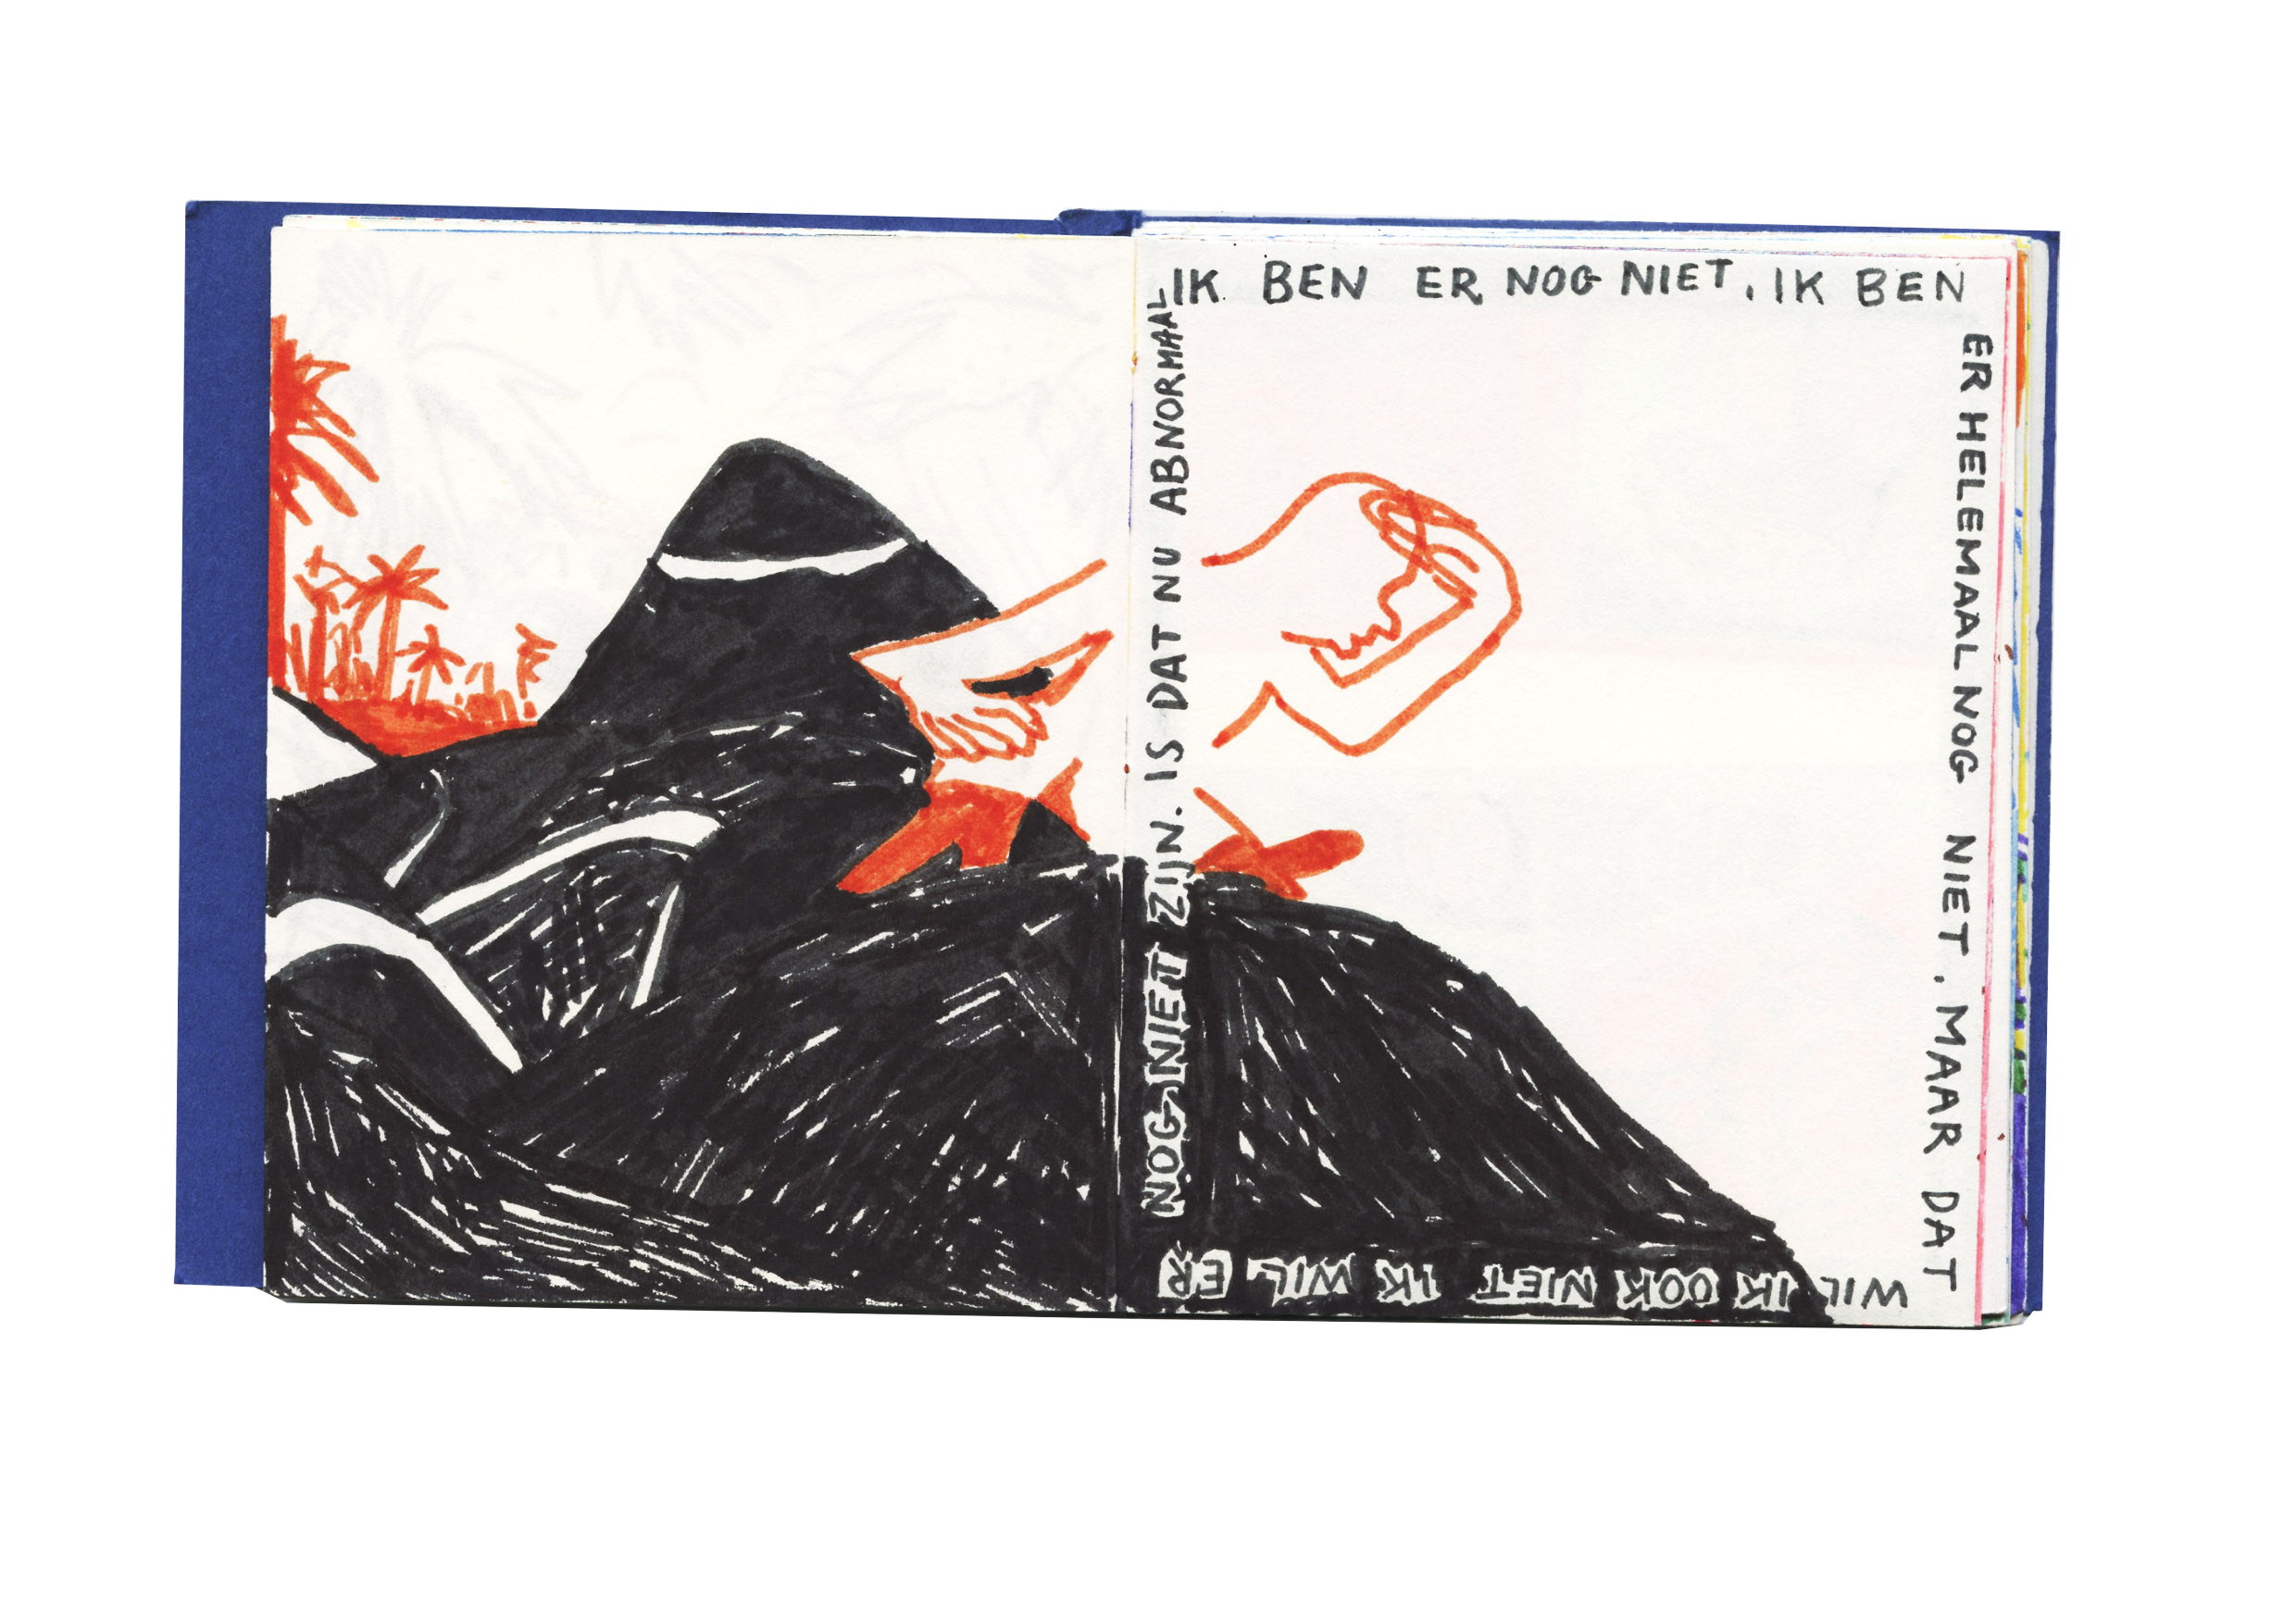 IK BEN ER NOG NIET, IK BEN
ER HELEMAAL NOG NIET. MAAR DAT
WIL IK OOK NIET IK WIL ER
NOG NIET ZIJN. IS DAT NU ABNORMAAL